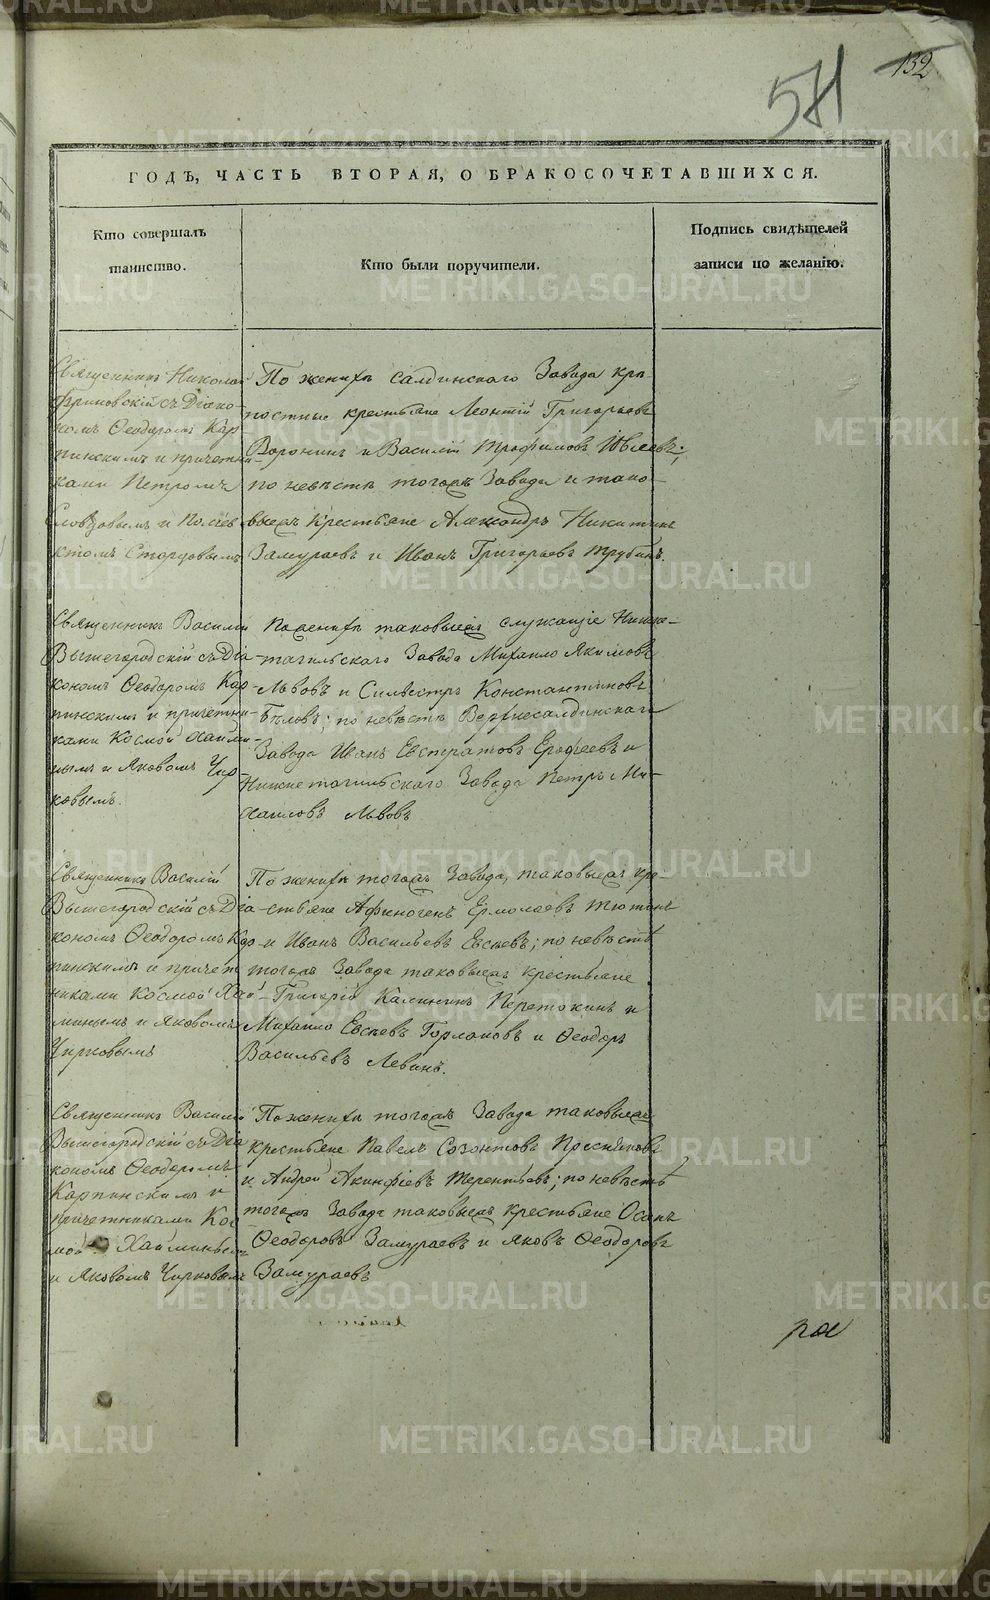 132
511
ГОДЪ, ЧАСТЬ ВТОРАЯ, О БРАКОСОЧЕТАВШИХСЯ.
Кто совершалъ
таинство.
Кто были поручители.
Подпись свидѣтелей
записи по желанію.
Священникъ Николай
съ Діако-
номъ Ѳеодоромъ Кар
пинскимъ и причетни-
ками Петромъ
Словцовымъ и
Старцовымъ
По женихѣ Салдинскаго Завода крѣ-
постные крестьяне Леонтій Григорьевъ
Воронинъ и Василій Трофимовъ
по невѣстѣ тогожъ Завода и тако-
выежъ крестьяне Александръ Никитинъ
Замураевъ и Иванъ Григорьевъ Трубинъ.
Священникъ Василій
Вышегородскій съ Діа-
кономъ Ѳеодоромъ Кар-
пинскимъ и причетни-
ками Космой Хайми-
нымъ и Яковомъ Чир-
ковымъ.
По женихѣ таковыежъ служащіе Нижне-
тагильскаго Завода Михайло Якимовъ
Львовъ и Сильвестръ Константиновъ
Бѣловъ; по невѣстѣ Верхнесалдинскаго
Завода Иванъ Евстратовъ Ерофеевъ и
Нижнетагильскаго Завода Петръ Ми-
хаиловъ Львовъ
Священникъ Василій
Вышегородскій съ Діа-
кономъ Ѳеодоромъ Кар-
пинскимъ и причет
никами Космой Хай-
минымъ и Яковомъ
Чирковымъ
По женихѣ тогожъ Завода, таковыежъ кре-
стьяне Афиногенъ Ермолаевъ Тютинъ
и Иванъ Васильевъ Евсѣевъ; по невѣстѣ
тогожъ Завода таковыежъ крестьяне
Григорій Калининъ Перетокинъ и
Михайло Евсѣевъ Горлановъ и Ѳеодоръ
Васильевъ Левинъ.
Священникъ Василій
Вышегородскій съ Діа
кономъ Ѳеодоромъ
Карпинскимъ и
причетниками Кос
мой Хайминымъ
и Яковомъ Чирковымъ
По женихѣ тогожъ Завода таковыежъ
крестьяне Павелъ Созонтовъ Пресняковъ
и Андрей Акинфіевъ Терентьевъ; по невѣстѣ
тогожъ Завода таковыежъ крестьяне Осипъ
Ѳеодоровъ Замураевъ и Яковъ Ѳеодоровъ
Замураевъ
METRIKI.GASO-URAL.RU